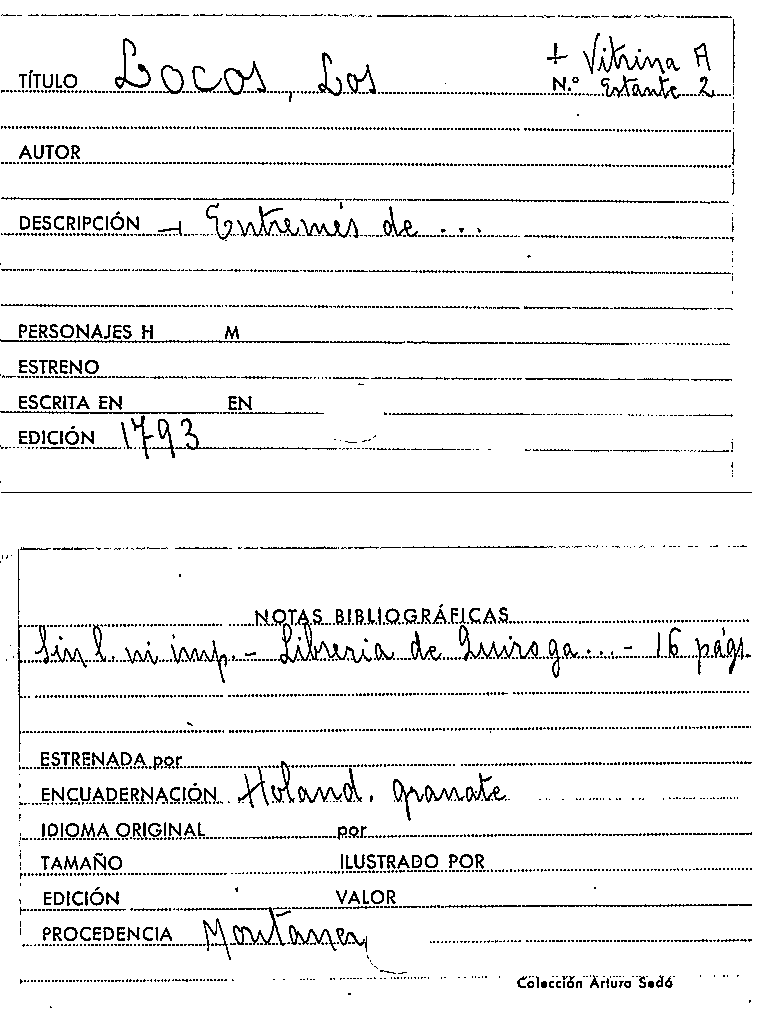 TÍTULO Locos, Los + Vitrina A
N.º Estante 2
AUTOR
DESCRIPCIÓN - Entremés de ...
PERSONAJES H M
ESTRENO
ESCRITA EN EN
EDICIÓN 1793
NOTAS BIBLIOGRÁFICAS
Sin l. ni imp. - Libreria de Quiroga... - 16 págs.
ESTRENADA por
ENCUADERNACIÓN Holand. granate
IDIOMA ORIGINAL por
TAMAÑO ILUSTRADO POR
EDICIÓN VALOR
PROCEDENCIA Montaner
Colección Arturo Sedó